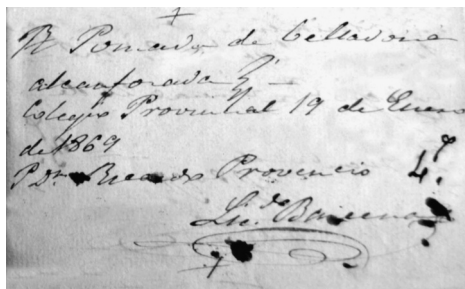 R Pomada de belladona
alcanforada
Colegio Provincial 19 de Enero
de 1869
P Dn Ricardo Provencio 4
Ldo Barcena